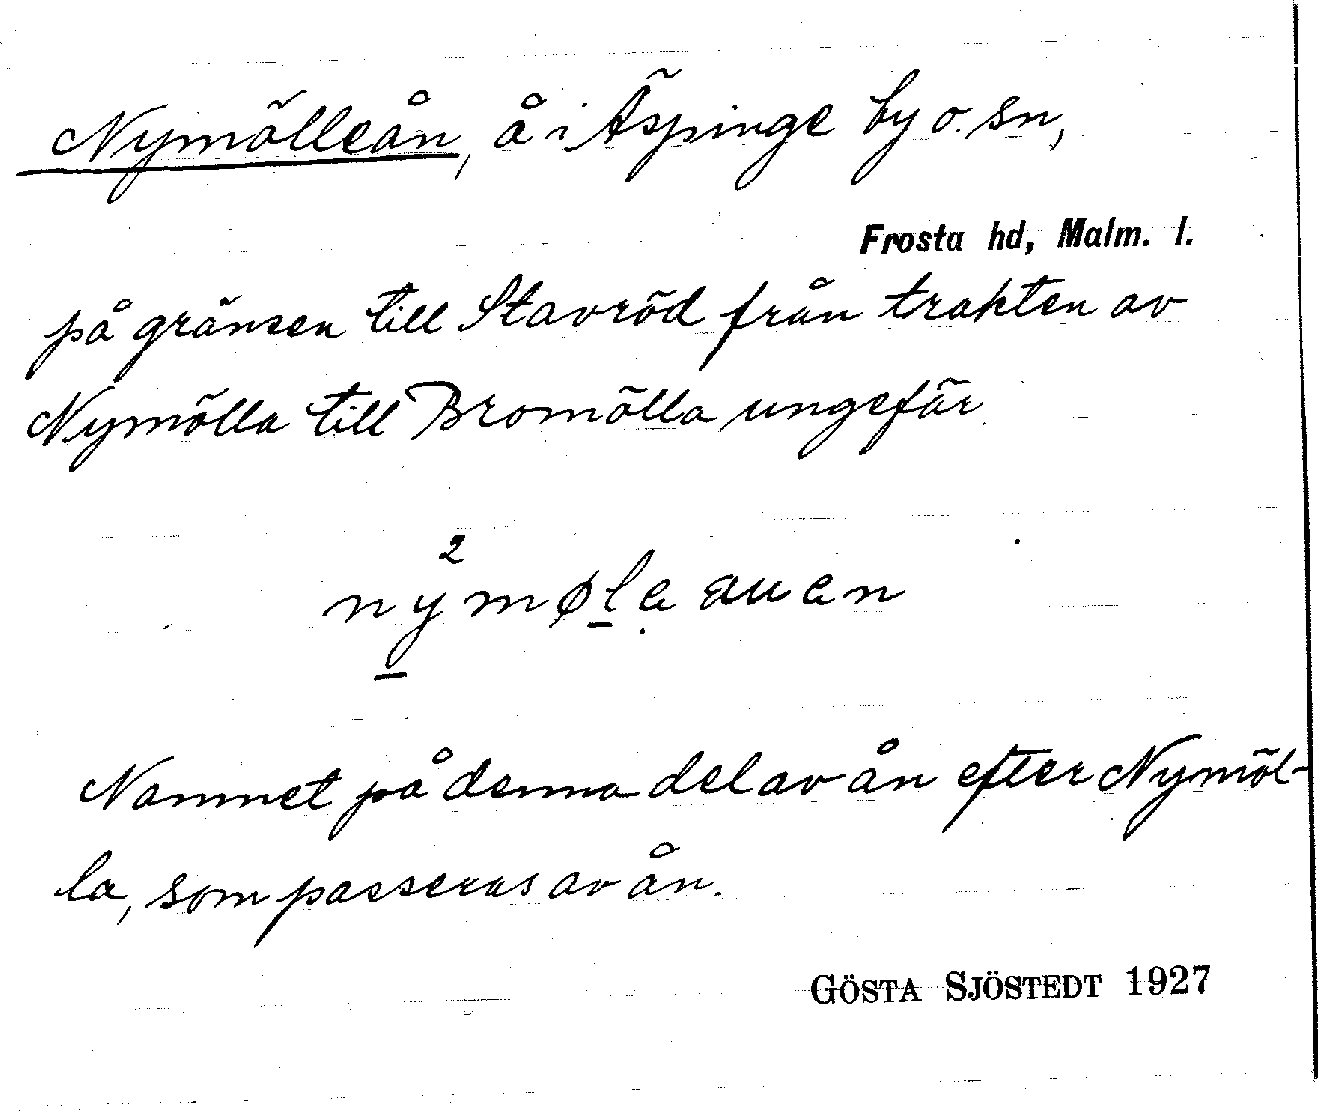 Nymölleån, å i Äspinge by o. sn,
Frosta hd, Malm. l.
på gränsen till Stavröd från trakten av
Nymölla till Bromölla ungefär
2
nymøla auan
Namnet på denna del av ån efter Nymöl-
la, som passeras av ån.
GÖSTA SJÖSTEDT 1927